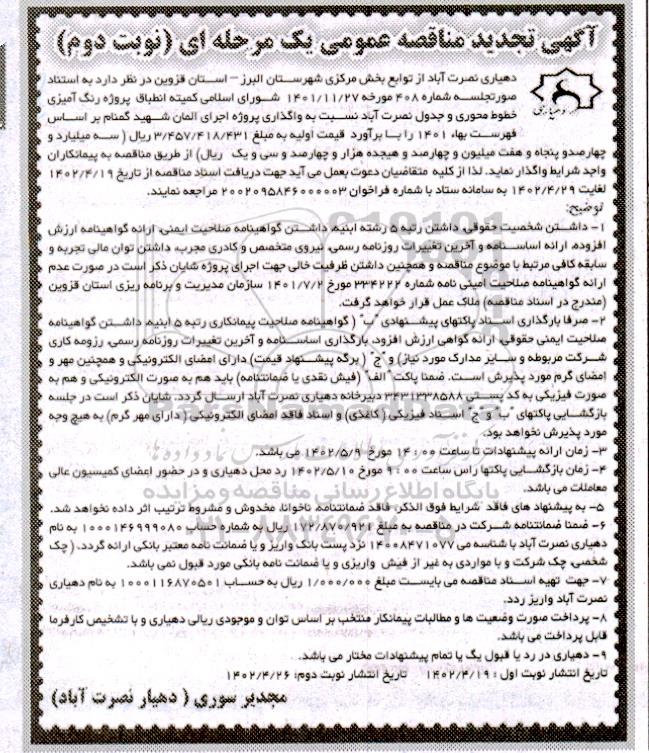 آگهی تجدید مناقصه عمومی یک مرحله ای (نوبت دوم)
دهیاری نصرت آباد از توابع بخش مرکزی شهرستان البرز – استان قزوین در نظر دارد به استناد
صورتجلسه شماره ۴۰۸ مورخه ۱۴۰۱/۱۱/۲۷ شورای اسلامی کمیته انطباق پروژه رنگ آمیزی
خطوط محوری و جدول نصرت آباد نسبت به واگذاری پروژه اجرای المان شهید گمنام بر اساس
فهرست بهاء ۱۴۰۱ را با برآورد قیمت اولیه به مبلغ ۳/۴۵۷/۴۱۸/۴۳۱ ریال ( سه میلیارد و
چهارصدو پنجاه و هفت میلیون و چهارصد و هیجده هزار و چهارصد و سی و یک ریال) از طریق مناقصه به پیمانکاران
واجد شرایط واگذار نماید. لذا از کلیه متقاضیان دعوت بعمل می آید جهت دریافت اسناد مناقصه از تاریخ ۱۴۰۲/۴/۱۹
لغایت ۱۴۰۲/۴/۲۹ به سامانه ستاد با شماره فراخوان ۲۰۰۲۰۹۵۸۴۶۰۰۰۰۰۳ مراجعه نمایند.
توضیح:
۱- داشتن شخصیت حقوقی، داشتن رتبه ۵ رشته ابنیه، داشتن گواهینامه صلاحیت ایمنی، ارائه گواهینامه ارزش
افزوده، ارائه اساسنامه و آخرین تغییرات روزنامه رسمی، نیروی متخصص و کادری مجرب، داشتن توان مالی تجربه و
سابقه کافی مرتبط با موضوع مناقصه و همچنین داشتن ظرفیت خالی جهت اجرای پروژه شایان ذکر است در صورت عدم
ارائه گواهینامه صلاحیت امینی نامه شماره ۳۳۴۲۲۲ مورخ ۱۴۰۱/۷/۲ سازمان مدیریت و برنامه ریزی استان قزوین
(مندرج در اسناد مناقصه) ملاک عمل قرار خواهد گرفت.
۲- صرفا بارگذاری اسناد پاکتهای پیشنهادی "ب" ( گواهینامه صلاحیت پیمانکاری رتبه ۵ ابنیه، داشتن گواهینامه
صلاحیت ایمنی حقوقی، ارائه گواهی ارزش افزود، بارگذاری اساسنامه و آخرین تغییرات روزنامه رسمی، رزومه کاری
شرکت مربوطه و سایر مدارک مورد نیاز) و "ج" ( برگه پیشنهاد قیمت) دارای امضای الکترونیکی و همچنین مهر و
امضای گرم مورد پذیرش است. ضمنا پاکت "الف" (فیش نقدی یا ضمانتنامه) باید هم به صورت الکترونیکی و هم به
صورت فیزیکی به کد پستی ۳۴۳۱۳۳۸۵۸۸ دبیرخانه دهیاری نصرت آباد ارسال گردد. شایان ذکر است در جلسه
بازگشایی پاکتهای "ب و ج" اسناد فیزیکی ( کاغذی) و اسناد فاقد امضای الکترونیکی ( دارای مهر گرم) به هیچ وجه
مورد پذیرش نخواهد بود.
۳- زمان ارائه پیشنهادات تا ساعت ۱۴:۰۰ مورخ ۱۴۰۲/۵/۹ می باشد.
۴- زمان بازگشایی پاکتها راس ساعت ۹:۰۰ مورخ ۱۴۰۲/۵/۱۰ رد محل دهیاری و در حضور اعضای کمیسیون عالی
معاملات می باشد.
۵- به پیشنهاد های فاقد شرایط فوق الذکر، فاقد ضمانتنامه، ناخوانا، مخدوش و مشروط ترتیب اثر داده نخواهد شد.
۶- ضمنا ضمانتنامه شرکت در مناقصه به مبلغ ۱۷۲/۸۷۰/۹۲۱ ریال به شماره حساب ۱۰۰۰۱۴۶۹۹۹۰۸۰ به نام
دهیاری نصرت آباد با شناسه می ۱۴۰۰۸۴۷۱۰۷۷ نزد پست بانک واریز و یا ضمانت نامه معتبر بانکی ارائه گردد. ( چک
شخصی، چک شرکت و یا مواردی به غیر از فیش واریزی و یا ضمانت نامه بانکی مورد قبول نمی باشد.
۷- جهت تهیه اسناد مناقصه می بایست مبلغ ۱/۰۰۰/۰۰۰ ریال به حساب ۱۰۰۰۱۱۶۸۷۰۵۰۱ به نام دهیاری
نصرت آباد واریز ردد.
۸- پرداخت صورت وضعیت ها و مطالبات پیمانکار منتخب بر اساس توان و موجودی ریالی دهیاری و با تشخیص کارفرما
قابل پرداخت می باشد.
۹- دهیاری در رد یا قبول یگ یا تمام پیشنهادات مختار می باشد.
تاریخ انتشار نوبت اول : ۱۴۰۲/۴/۱۹ تاریخ انتشار نوبت دوم: ۱۴۰۲/۴/۲۶
مجدیر سوری ( دهیار نصرت آباد)
پایگاه اطلاع رسانی مناقصه و مزایده